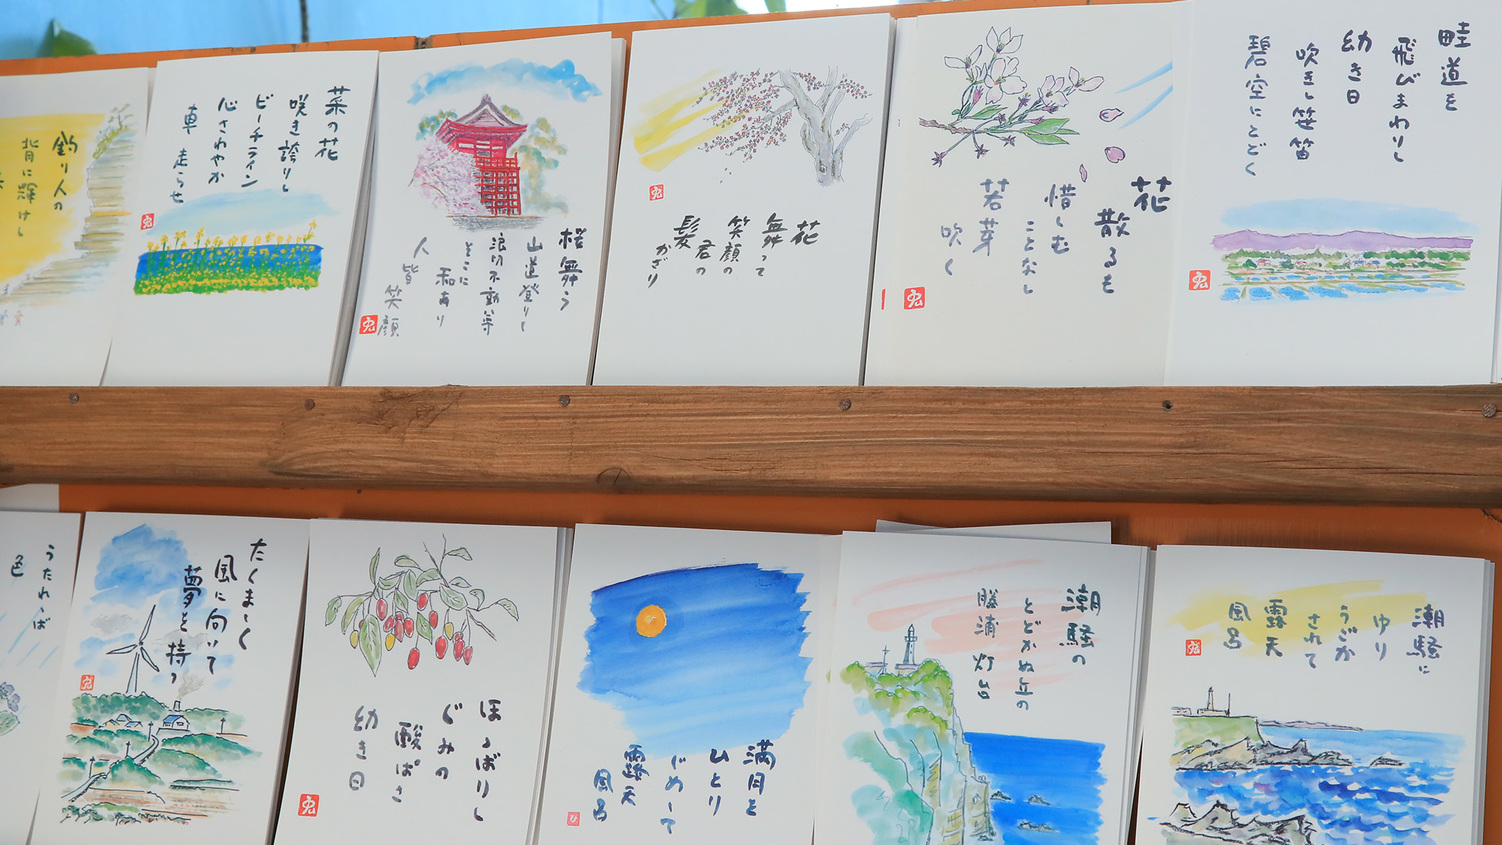 釣り人の
背に輝けし
菜の花
咲き誇りし
ビーチライン
心さわやか
車走らせ
桜舞う
山道登りし
浪切不動等
そこに和あり
人皆笑顔
花
舞って
笑顔の
君の
髪
かざり
花
散るも
惜しむ
ことなし
若芽
吹く
畦道を
飛びまわりし
幼き日
吹きし笹笛
碧空にとどく
うたれ
色
たくましく
風に向いて
夢を持つ
ほうばりし
ぐみの
酸ぱさ
幼き日
満月を
ひとり
じめして
露天
風呂
潮騒の
とどかぬ丘の
勝浦灯台
潮騒に
ゆり
うごか
されて
露天
風呂